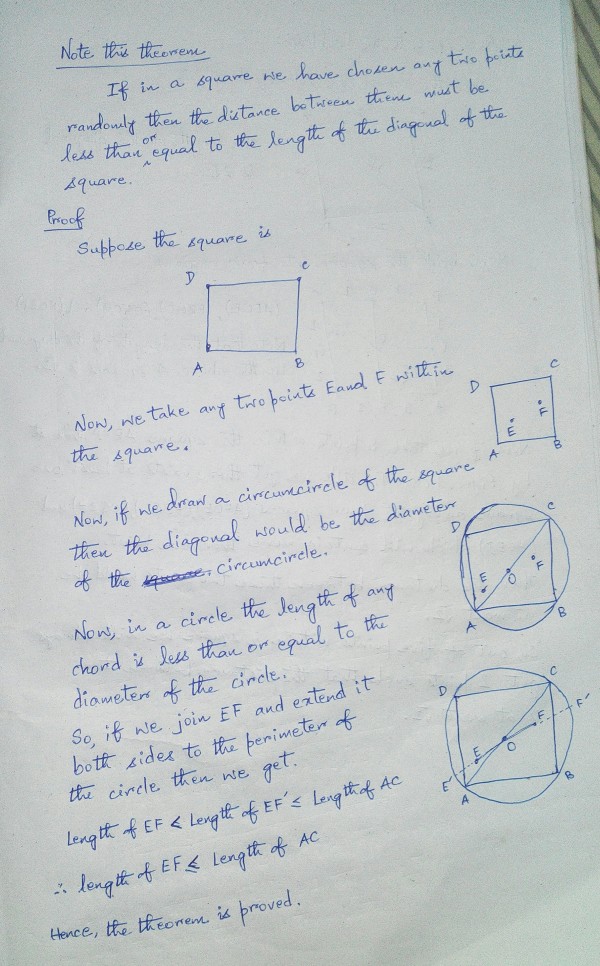 Note this theorem
If in a square we have chosen any two points
randomly then the distance between them must be
less than or equal to the length of the diagonal of the
square.
Proof
Suppose the square is
D C
A B
Now, we take any two points E and F within
the square.
D C
E F
A B
Now, if we draw a circumcircle of the square
then the diagonal would be the diameter
of the square. circumcircle.
D C
E O F
A B
Now, in a circle the length of any
chord is less than or equal to the
diameter of the circle.
So, if we join EF and extend it
both sides to the perimeter of
the circle then we get.
D C
F F'
E O
E' A B
Length of EF < Length of EF' ≤ Length of AC
∴ length of EF ≤ Length of AC
Hence, the theorem is proved.